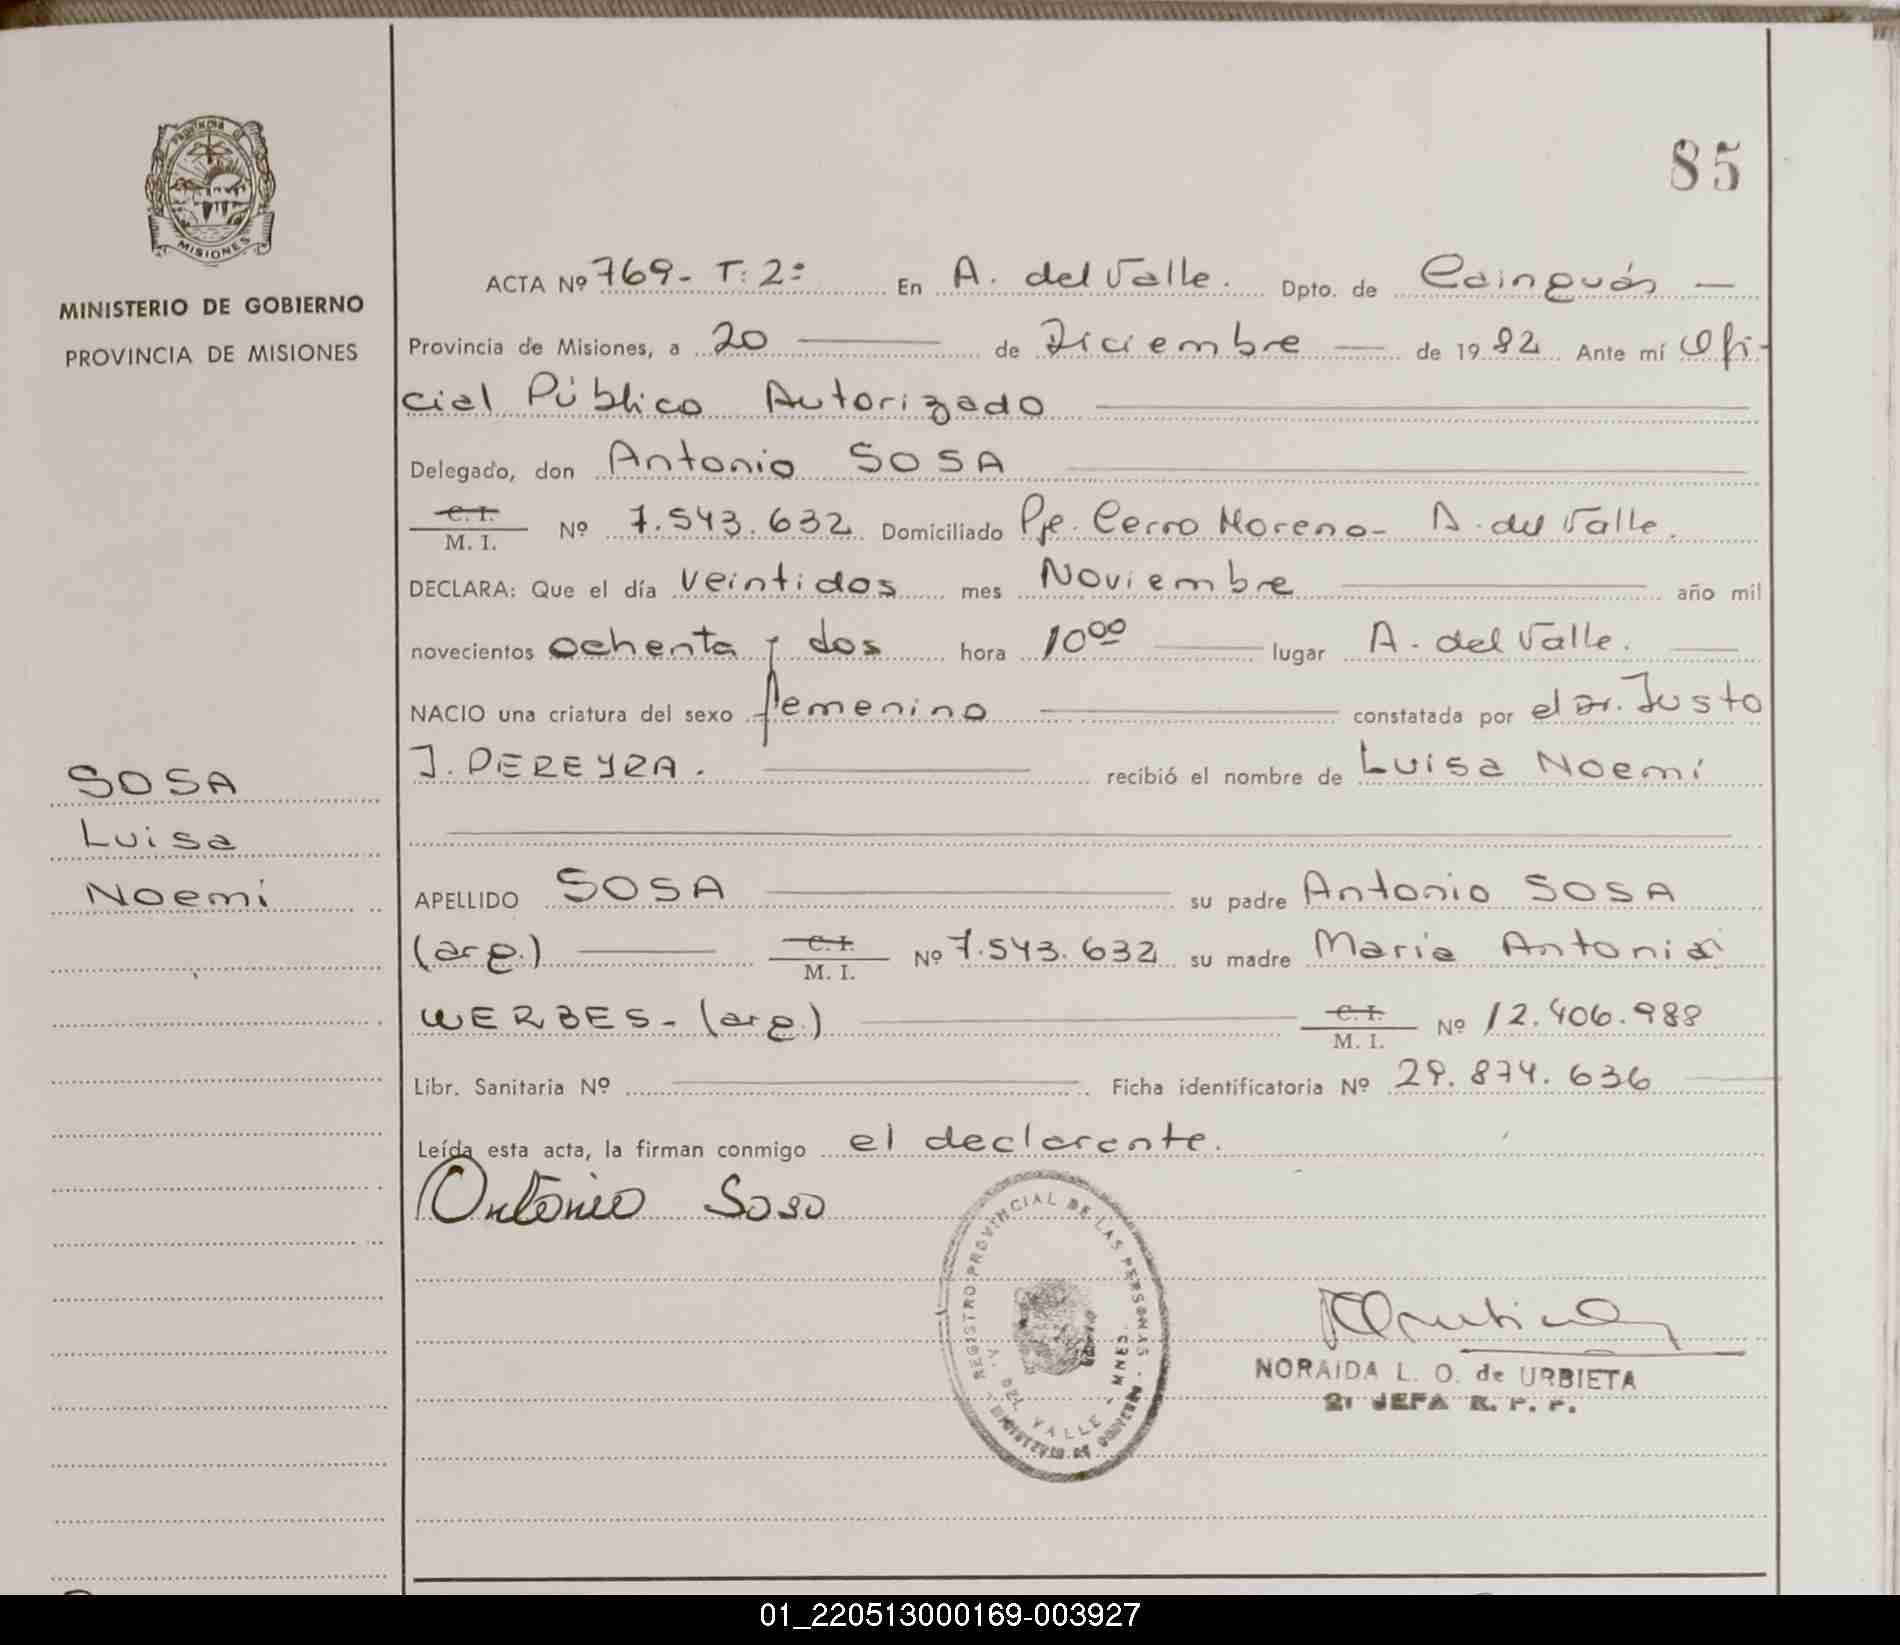 PROVINCIA D
MISIONES
MINISTERIO DE GOBIERNO
PROVINCIA DE MISIONES
85
ACTA Nº 769- T: 2º En A. del Valle. Dpto. de Cainguás
Provincia de Misiones, a 20 de Diciembre de 1982 Ante mí Ofi-
cial Público Autorizado
Delegado, don Antonio SOSA
C. I.
M. I. Nº 7.543.632 Domiciliado Pje. Cerro Moreno- A. del Valle.
DECLARA: Que el día veintidos mes Noviembre año mil
novecientos ochenta y dos hora 10⁰⁰ lugar A. del Valle.
NACIO una criatura del sexo femenino constatada por el Dr. Justo
J. PEREYRA. recibió el nombre de Luisa Noemí
SOSA
Luisa
Noemí
APELLIDO SOSA su padre Antonio SOSA
(arg.) C. I.
M. I. Nº 7.543.632 su madre Maria Antonia
WERBES- (arg.) C. I.
M. I. Nº 12.406.988
Libr. Sanitaria Nº Ficha identificatoria Nº 29.874.636
Leída esta acta, la firman conmigo el declarante.
Antonio Sosa
REGISTRO PROVINCIAL DE LAS PERSONAS
A. DEL VALLE - MNES.
NORAIDA L. O. de URBIETA
2ª JEFA R. P. P.
01_220513000169-003927